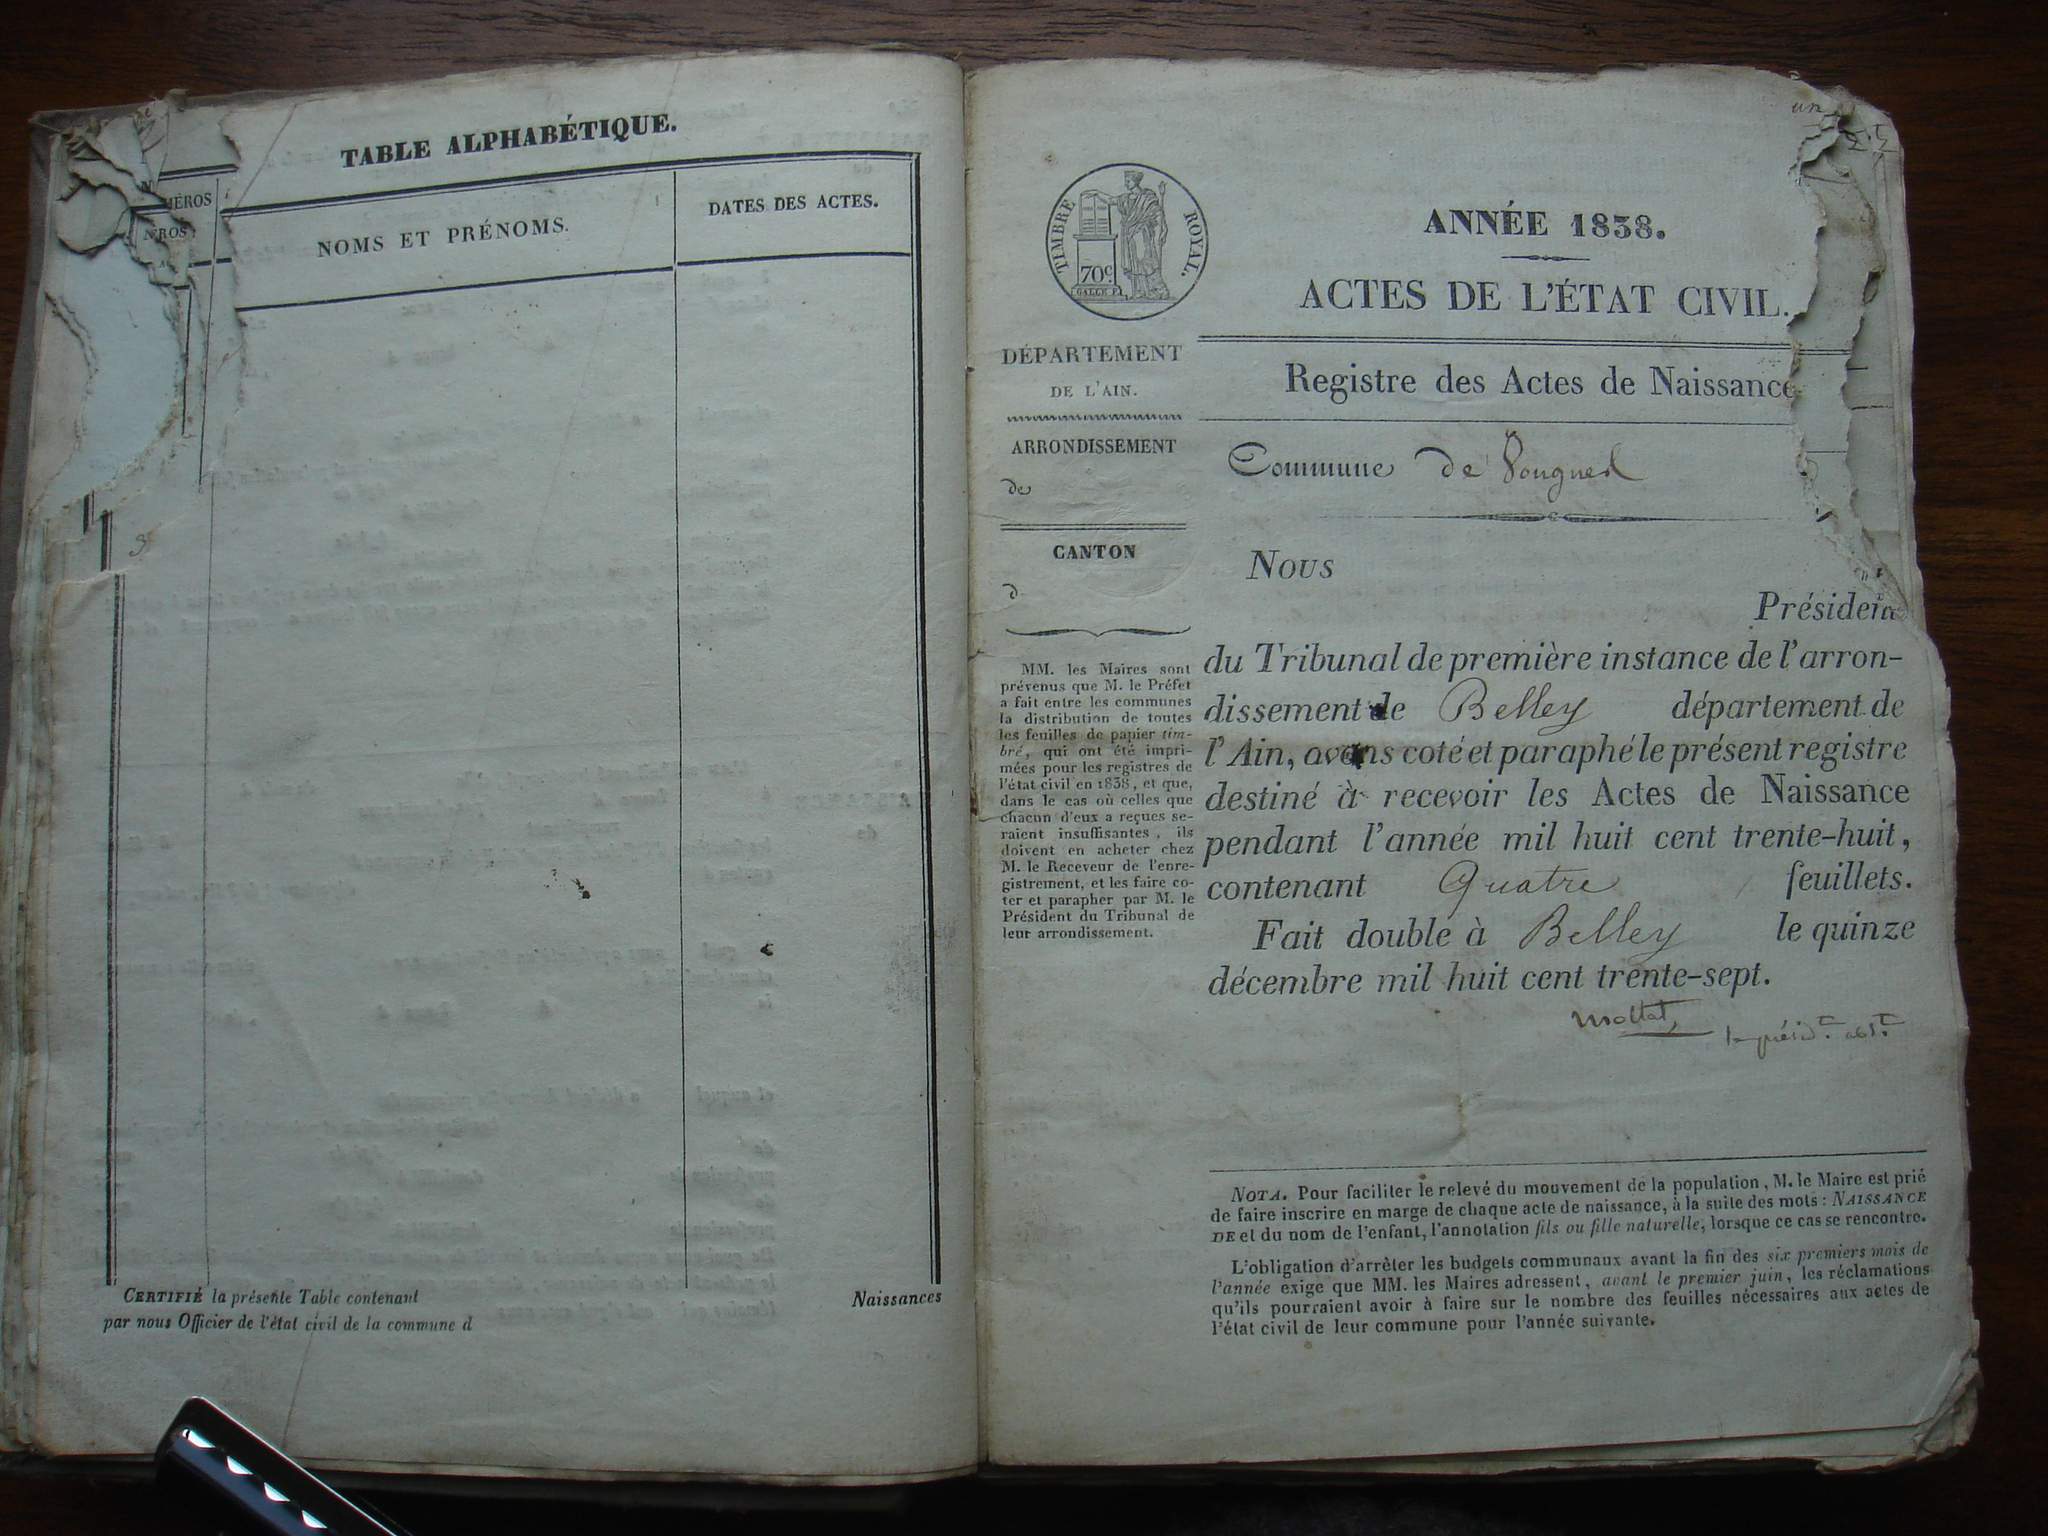 TABLE ALPHABÉTIQUE.
NOMS ET PRÉNOMS.
DATES DES ACTES.
CERTIFIÉ la présente Table contenant
Naissances
par nous Officier de l'état civil de la commune d
TIMBRE ROYAL.
70c
ANNÉE 1838.
ACTES DE L'ÉTAT CIVIL.
DÉPARTEMENT
DE L'AIN.
Registre des Actes de Naissance
ARRONDISSEMENT
de
Commune de
CANTON
d
MM. les Maires sont
prévenus que M. le Préfet
a fait entre les communes
la distribution de toutes
les feuilles de papier tim-
bré, qui ont été impri-
mées pour les registres de
l'état civil en 1838, et que,
dans le cas où celles que
chacun d'eux a reçues se-
raient insuffisantes, ils
doivent en acheter chez
M. le Receveur de l'enre-
gistrement, et les faire co-
ter et parapher par M. le
Président du Tribunal de
leur arrondissement.
Nous
Président
du Tribunal de première instance de l'arron-
dissement de Belley département de
l'Ain, avons coté et paraphé le présent registre
destiné à recevoir les Actes de Naissance
pendant l'année mil huit cent trente-huit,
contenant Quatre feuillets.
Fait double à Belley le quinze
décembre mil huit cent trente-sept.
NOTA. Pour faciliter le relevé du mouvement de la population, M. le Maire est prié
de faire inscrire en marge de chaque acte de naissance, à la suite des mots : NAISSANCE
DE et du nom de l'enfant, l'annotation fils ou fille naturelle, lorsque ce cas se rencontre.
L'obligation d'arrêter les budgets communaux avant la fin des six premiers mois de
l'année exige que MM. les Maires adressent, avant le premier juin, les réclamations
qu'ils pourraient avoir à faire sur le nombre des feuilles nécessaires aux actes de
l'état civil de leur commune pour l'année suivante.